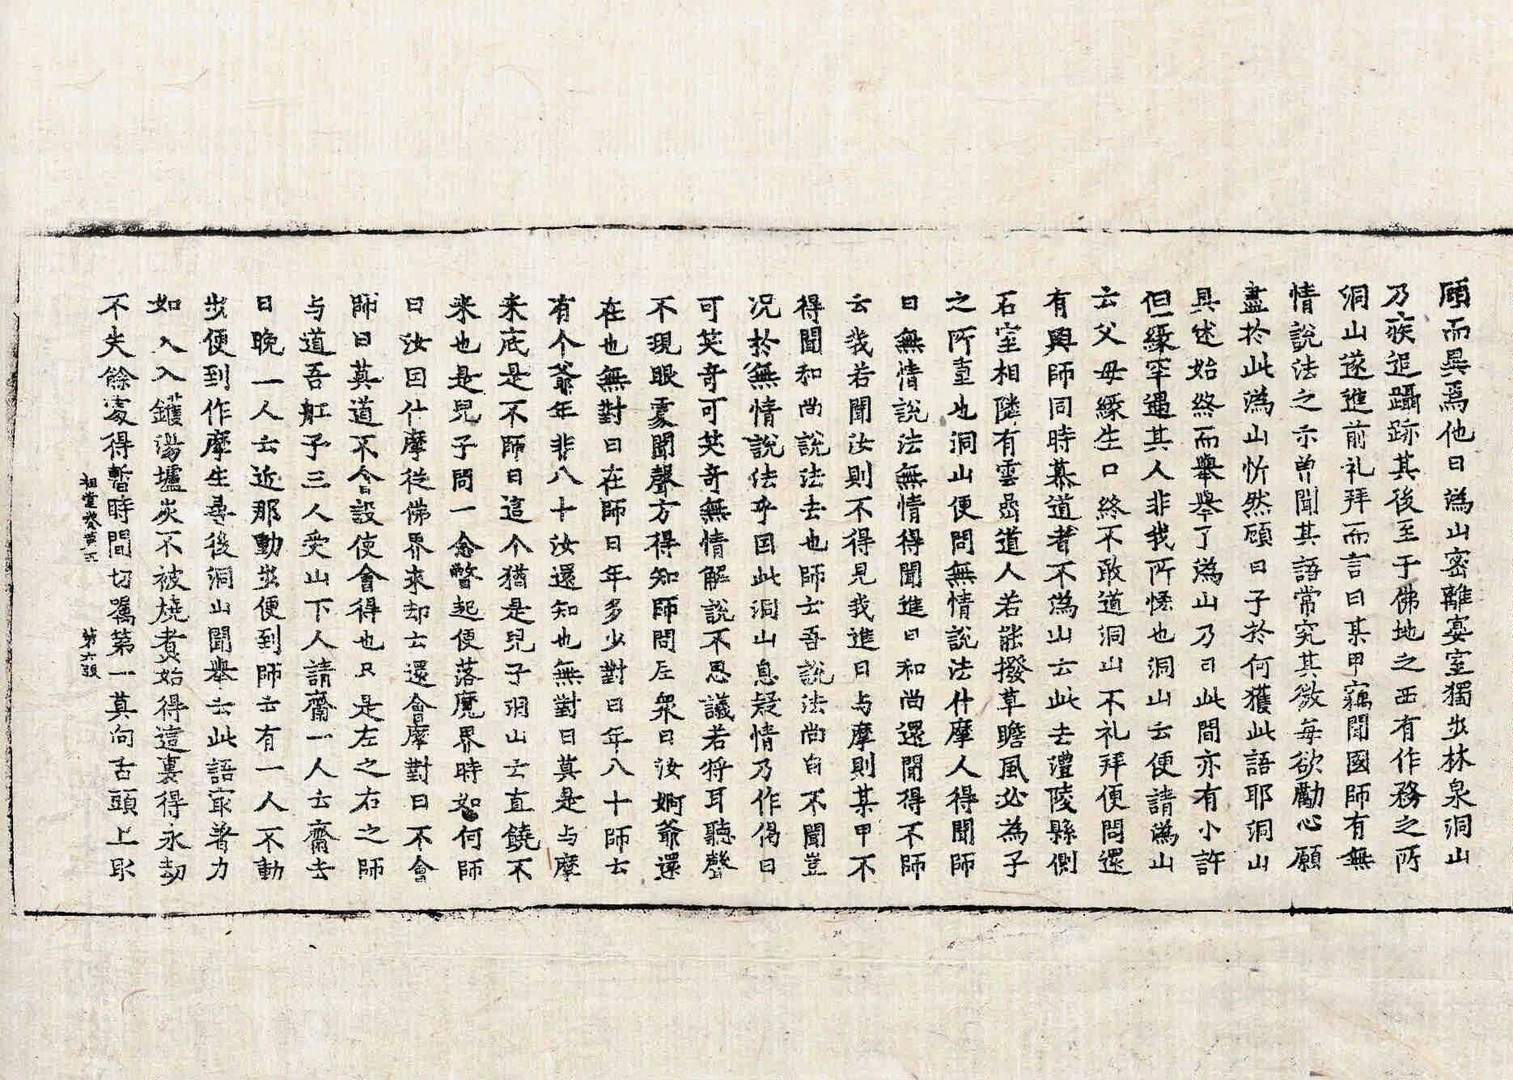 顧而異焉他日溈山密離宴室獨出林泉洞山
乃疾追躡跡其後至于佛地之西有作務之所
洞山遂進前礼拜而言曰某甲竊聞國師有無
情說法之示曽聞其語常究其微每欲勵心願
盡於此溈山忻然顧曰子於何獲此語耶洞山
具述始終而舉舉了溈山乃曰此間亦有小許
但緣罕遇其人非我所恡也洞山云便請溈山
云父母緣生口終不敢道洞山不礼拜便問還
有與師同時慕道者不溈山云此去澧陵縣側
石室相隣有雲嵒道人若能撥草瞻風必為子
之所重也洞山便問無情說法什摩人得聞師
曰無情說法無情得聞進曰和尚還聞得不師
云我若聞汝則不得見我進曰与摩則某甲不
得聞和尚說法去也師云吾說法尚自不聞豈
况於無情說法乎因此洞山息疑情乃作偈曰
可笑奇可笑奇無情解說不思議若將耳聽聲
不現眼處聞聲方得知師問左衆曰汝婀爺還
在也無對曰在師曰年多少對曰年八十師云
有个爺年非八十汝還知也無對曰莫是与摩
来底是不師曰這个猶是兒子洞山云直饒不
来也是兒子問一念瞥起便落魔界時如何師
曰汝因什摩從佛界来却云還會摩對曰不會
師曰莫道不會設使會得也只是左之右之師
与道吾舡子三人受山下人請齋一人云齋去
日晚一人云近那動出便到師云有一人不動
出便到作摩生尋後洞山聞舉云此語寂著力
如人入鑊湯爐炭不被燒煑始得這裏得永劫
不失餘處得暫時間切囑第一莫向舌頭上取
祖堂卷第五 第六張